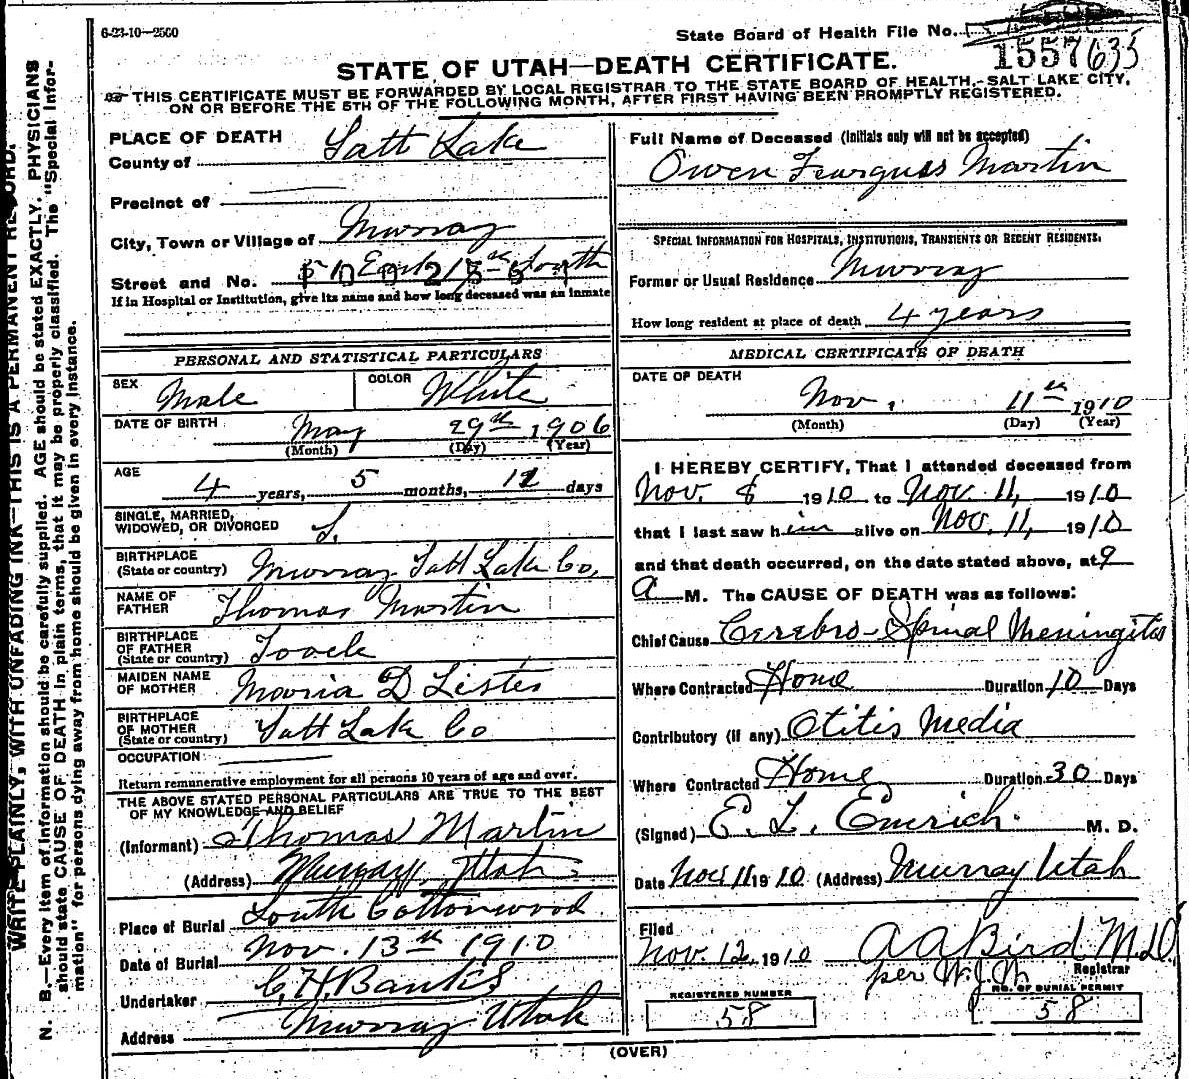 6-23-10—2500
State Board of Health File No.
1557635
STATE OF UTAH—DEATH CERTIFICATE.
THIS CERTIFICATE MUST BE FORWARDED BY LOCAL REGISTRAR TO THE STATE BOARD OF HEALTH, SALT LAKE CITY,
ON OR BEFORE THE 5TH OF THE FOLLOWING MONTH, AFTER FIRST HAVING BEEN PROMPTLY REGISTERED.
PLACE OF DEATH
County of Salt Lake
Precinct of
City, Town or Village of Murray
Street and No. East South
If in Hospital or Institution, give its name and how long deceased was an inmate
PERSONAL AND STATISTICAL PARTICULARS
SEX Male COLOR White
DATE OF BIRTH May 29th 1906
(Month) (Day) (Year)
AGE 4 years, 5 months, 12 days
SINGLE, MARRIED,
WIDOWED, OR DIVORCED S.
BIRTHPLACE
(State or country) Murray Salt Lake Co,
NAME OF
FATHER Thomas Martin
BIRTHPLACE
OF FATHER
(State or country) Tooele
MAIDEN NAME
OF MOTHER Maria D Lister
BIRTHPLACE
OF MOTHER
(State or country) Salt Lake Co
OCCUPATION
Return remunerative employment for all persons 10 years of age and over.
THE ABOVE STATED PERSONAL PARTICULARS ARE TRUE TO THE BEST
OF MY KNOWLEDGE AND BELIEF
(Informant) Thomas Martin
(Address) Murray Utah
Place of Burial South Cottonwood
Date of Burial Nov. 13th 1910
Undertaker C. H. Banks
Address Murray Utah
Full Name of Deceased (Initials only will not be accepted)
Owen Fearguss Martin
SPECIAL INFORMATION FOR HOSPITALS, INSTITUTIONS, TRANSIENTS OR RECENT RESIDENTS.
Former or Usual Residence Murray
How long resident at place of death 4 years
MEDICAL CERTIFICATE OF DEATH
DATE OF DEATH
Nov. 11th 1910
(Month) (Day) (Year)
I HEREBY CERTIFY, That I attended deceased from
Nov. 8 1910 to Nov. 11, 1910
that I last saw him alive on Nov. 11, 1910
and that death occurred, on the date stated above, at 9
a M. The CAUSE OF DEATH was as follows:
Chief Cause Cerebro-Spinal Meningitis
Where Contracted Home Duration 10 Days
Contributory (if any) Otitis Media
Where Contracted Home Duration 30 Days
(Signed) E. L. Emrich. M. D.
Date Nov 11 1910 (Address) Murray Utah
Filed
Nov. 12, 1910 A A Bird M.D.
per W.J.M. Registrar
REGISTERED NUMBER
58
NO. OF BURIAL PERMIT
58
(OVER)
WRITE PLAINLY, WITH UNFADING INK—THIS IS A PERMANENT RECORD.
N. B.—Every item of information should be carefully supplied. AGE should be stated EXACTLY. PHYSICIANS
should state CAUSE OF DEATH in plain terms, that it may be properly classified. The "Special Infor-
mation" for persons dying away from home should be given in every instance.